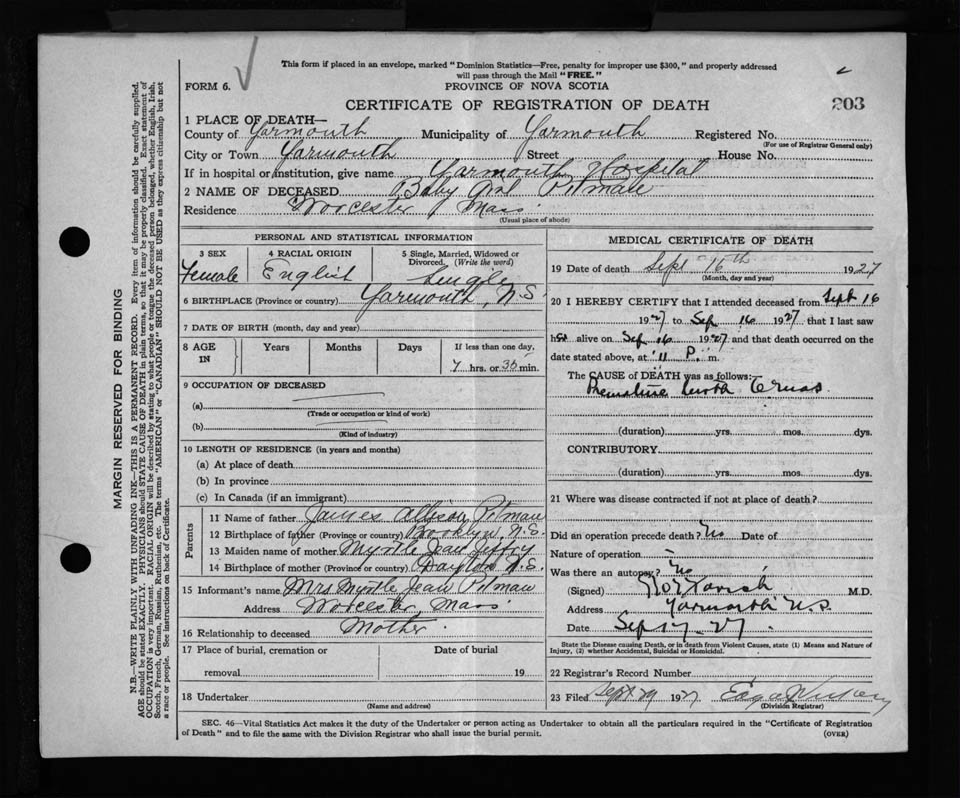 This form if placed in an envelope, marked "Dominion Statistics—Free, penalty for improper use $300," and properly addressed
will pass through the Mail "FREE."
FORM 6.
PROVINCE OF NOVA SCOTIA
CERTIFICATE OF REGISTRATION OF DEATH
203
1 PLACE OF DEATH—
County of Yarmouth Municipality of Yarmouth Registered No.
(For use of Registrar General only)
City or Town Yarmouth Street House No.
If in hospital or institution, give name Yarmouth Hospital
2 NAME OF DECEASED Baby Girl Pitman
Residence Worcester Mass.
(Usual place of abode)
PERSONAL AND STATISTICAL INFORMATION
3 SEX 4 RACIAL ORIGIN 5 Single, Married, Widowed or
Divorced. (Write the word)
Female English Single
6 BIRTHPLACE (Province or country) Yarmouth, N.S.
7 DATE OF BIRTH (month, day and year)
8 AGE IN Years Months Days If less than one day,
7 hrs. or 35 min.
9 OCCUPATION OF DECEASED
(a)
(Trade or occupation or kind of work)
(b)
(Kind of industry)
10 LENGTH OF RESIDENCE (in years and months)
(a) At place of death
(b) In province
(c) In Canada (if an immigrant)
Parents
11 Name of father James Allison Pitman
12 Birthplace of father (Province or country) Brooklyn, N.S.
13 Maiden name of mother Myrtle Jean Jeffry
14 Birthplace of mother (Province or country) Dayton N.S.
15 Informant's name Mrs Myrtle Jean Pitman
Address Worcester, Mass.
16 Relationship to deceased Mother.
17 Place of burial, cremation or Date of burial
removal 19
18 Undertaker
(Name and address)
MEDICAL CERTIFICATE OF DEATH
19 Date of death Sept 16th 1927
(Month, day and year)
20 I HEREBY CERTIFY that I attended deceased from Sept 16
1927 to Sep 16 1927 that I last saw
h alive on Sep 16 1927 and that death occurred on the
date stated above, at 11 P. m.
The CAUSE of DEATH was as follows:—
Premature birth 6 mos
(duration) yrs. mos. dys.
CONTRIBUTORY
(duration) yrs. mos. dys.
21 Where was disease contracted if not at place of death?
Did an operation precede death? No Date of
Nature of operation
Was there an autopsy? No
(Signed) M.D.
Address Yarmouth N.S.
Date Sep 17-27.
State the Disease causing Death, or in death from Violent Causes, state (1) Means and Nature of
Injury, (2) whether Accidental, Suicidal or Homicidal.
22 Registrar's Record Number
23 Filed Sept. 29 1927
(Division Registrar)
SEC. 46—Vital Statistics Act makes it the duty of the Undertaker or person acting as Undertaker to obtain all the particulars required in the "Certificate of Registration
of Death" and to file the same with the Division Registrar who shall issue the burial permit.
(OVER)
MARGIN RESERVED FOR BINDING
N.B.—WRITE PLAINLY WITH UNFADING INK—THIS IS A PERMANENT RECORD. Every item of information should be carefully supplied.
AGE should be stated EXACTLY. PHYSICIANS should STATE CAUSE OF DEATH in plain terms, so that it may be properly classified. Exact statement of
OCCUPATION is very important. RACIAL ORIGIN will be described by stating to what people or tongue the deceased person belonged, whether English, Irish,
Scotch, French, German, Russian, Ruthenian, etc. The terms "AMERICAN" or "CANADIAN" SHOULD NOT BE USED as they express citizenship but not
a race or people. See instructions on back of Certificate.